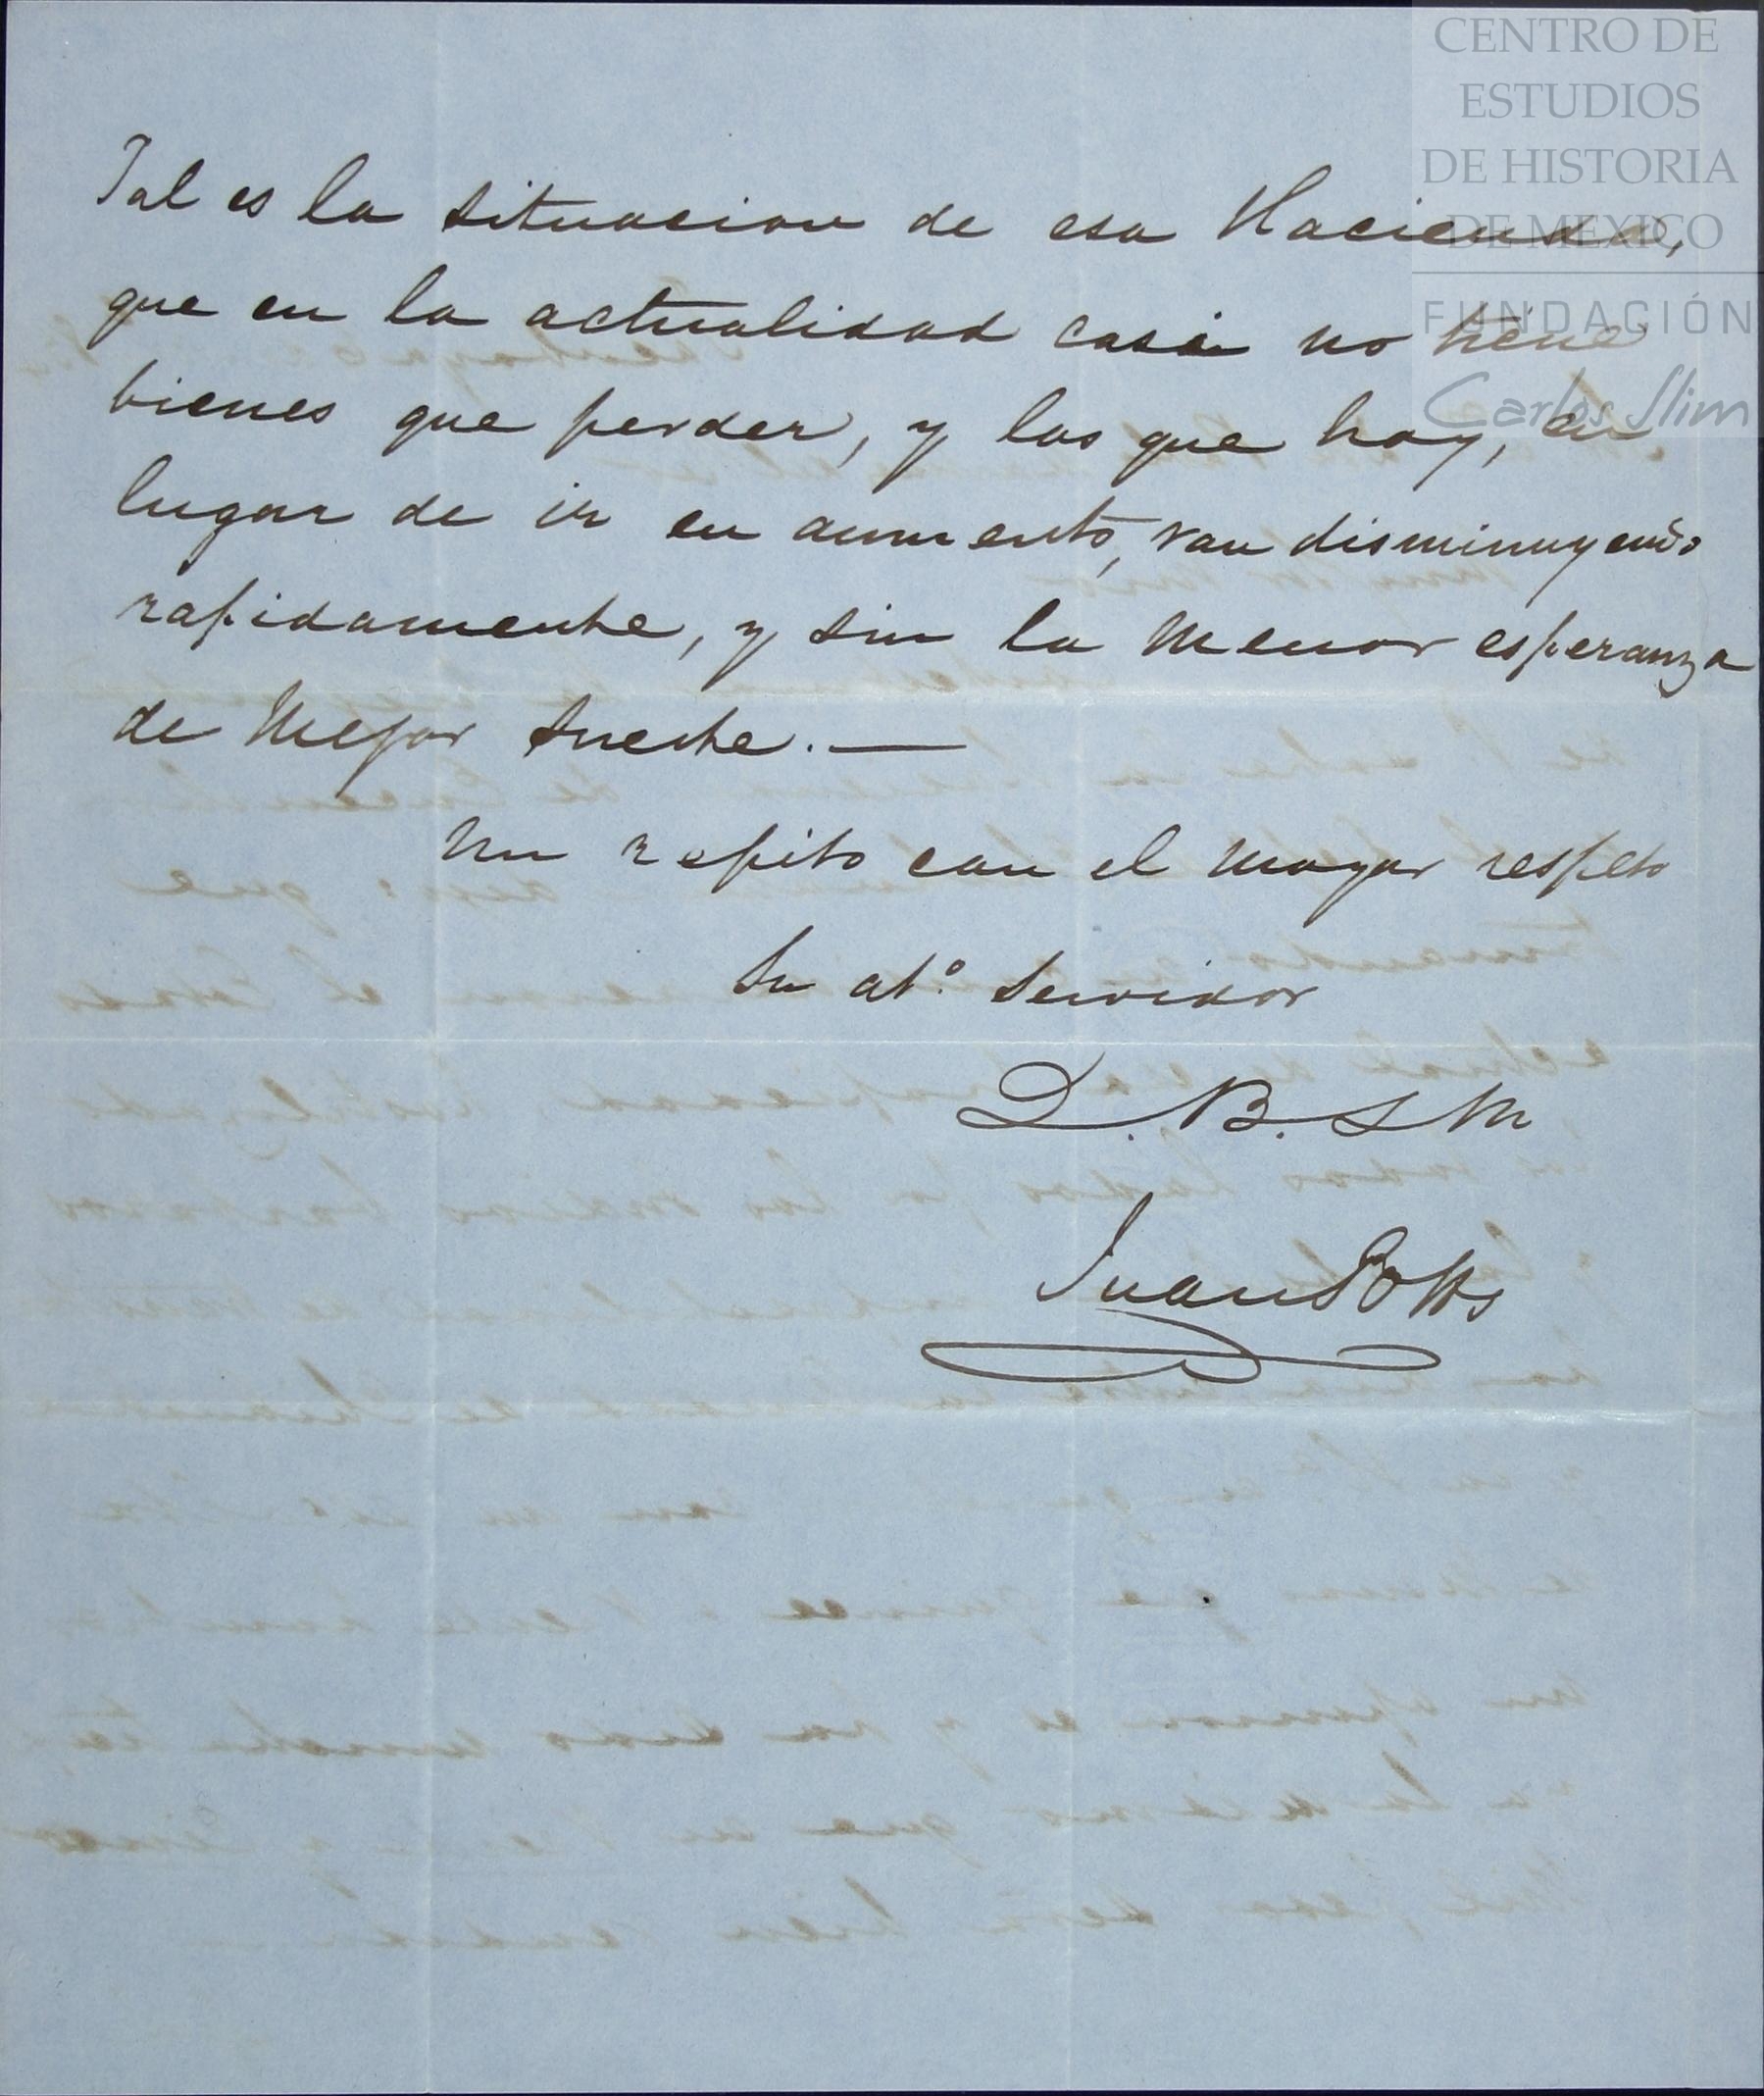 CENTRO DE
ESTUDIOS
DE HISTORIA
DE MEXICO
FUNDACIÓN
Carlos Slim
Tal es la situacion de esa Hacienda,
que en la actualidad casi no tiene
bienes que perder, y los que hay, en
lugar de ir en aumento, van disminuyendo
rapidamente, y sin la menor esperanza
de mejor suerte. —
Me repito con el mayor respeto
Su at.º Servidor
Q. B. S M
Juan Potts